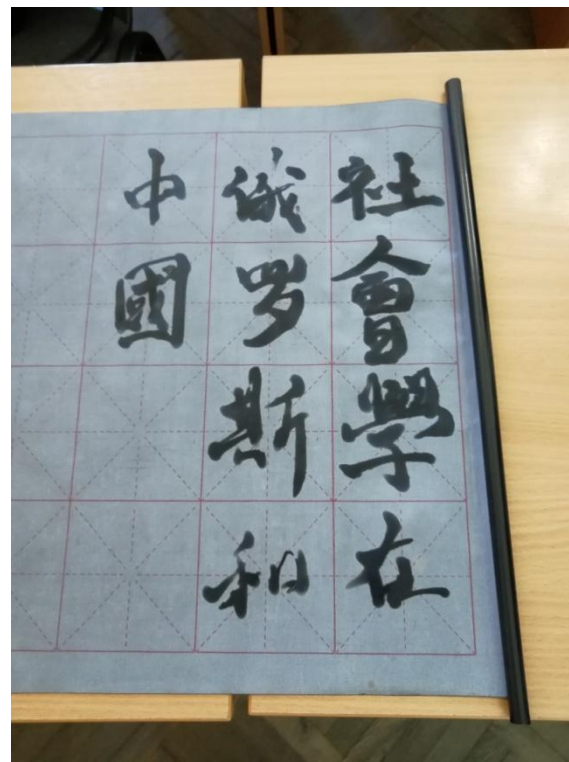 社會學在
俄罗斯和
中國